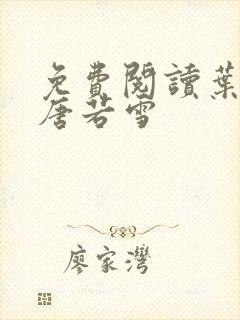 免費閱讀葉
唐若雪
廖家灣